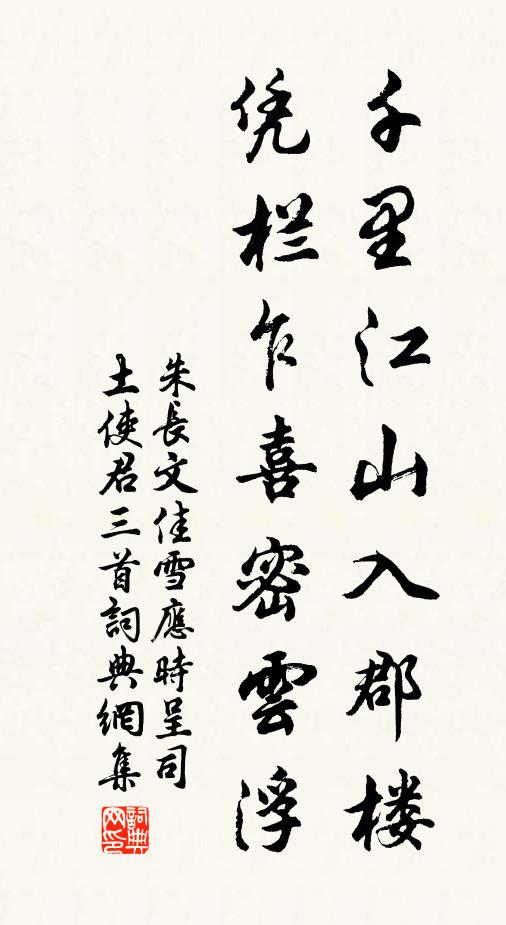 千里江山入郡楼
凭栏乍喜密雲浮
朱長文佳雪應時呈司
土使君三首詞典網集
詞典网印